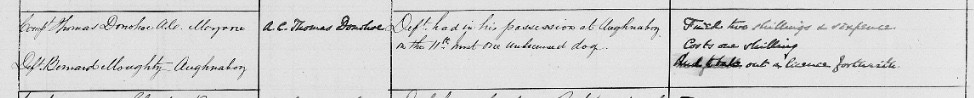 Compt Thomas Donohoe A.C. Moyne
A.C. Thomas Donohoe
Deft. had in his possession at Aughnaboy
on the 11th inst one unlicensed dog.
Fined two shillings & sixpence
Costs one shilling
out a licence forthwith
Deft. Bernard Moughty Aughnaboy